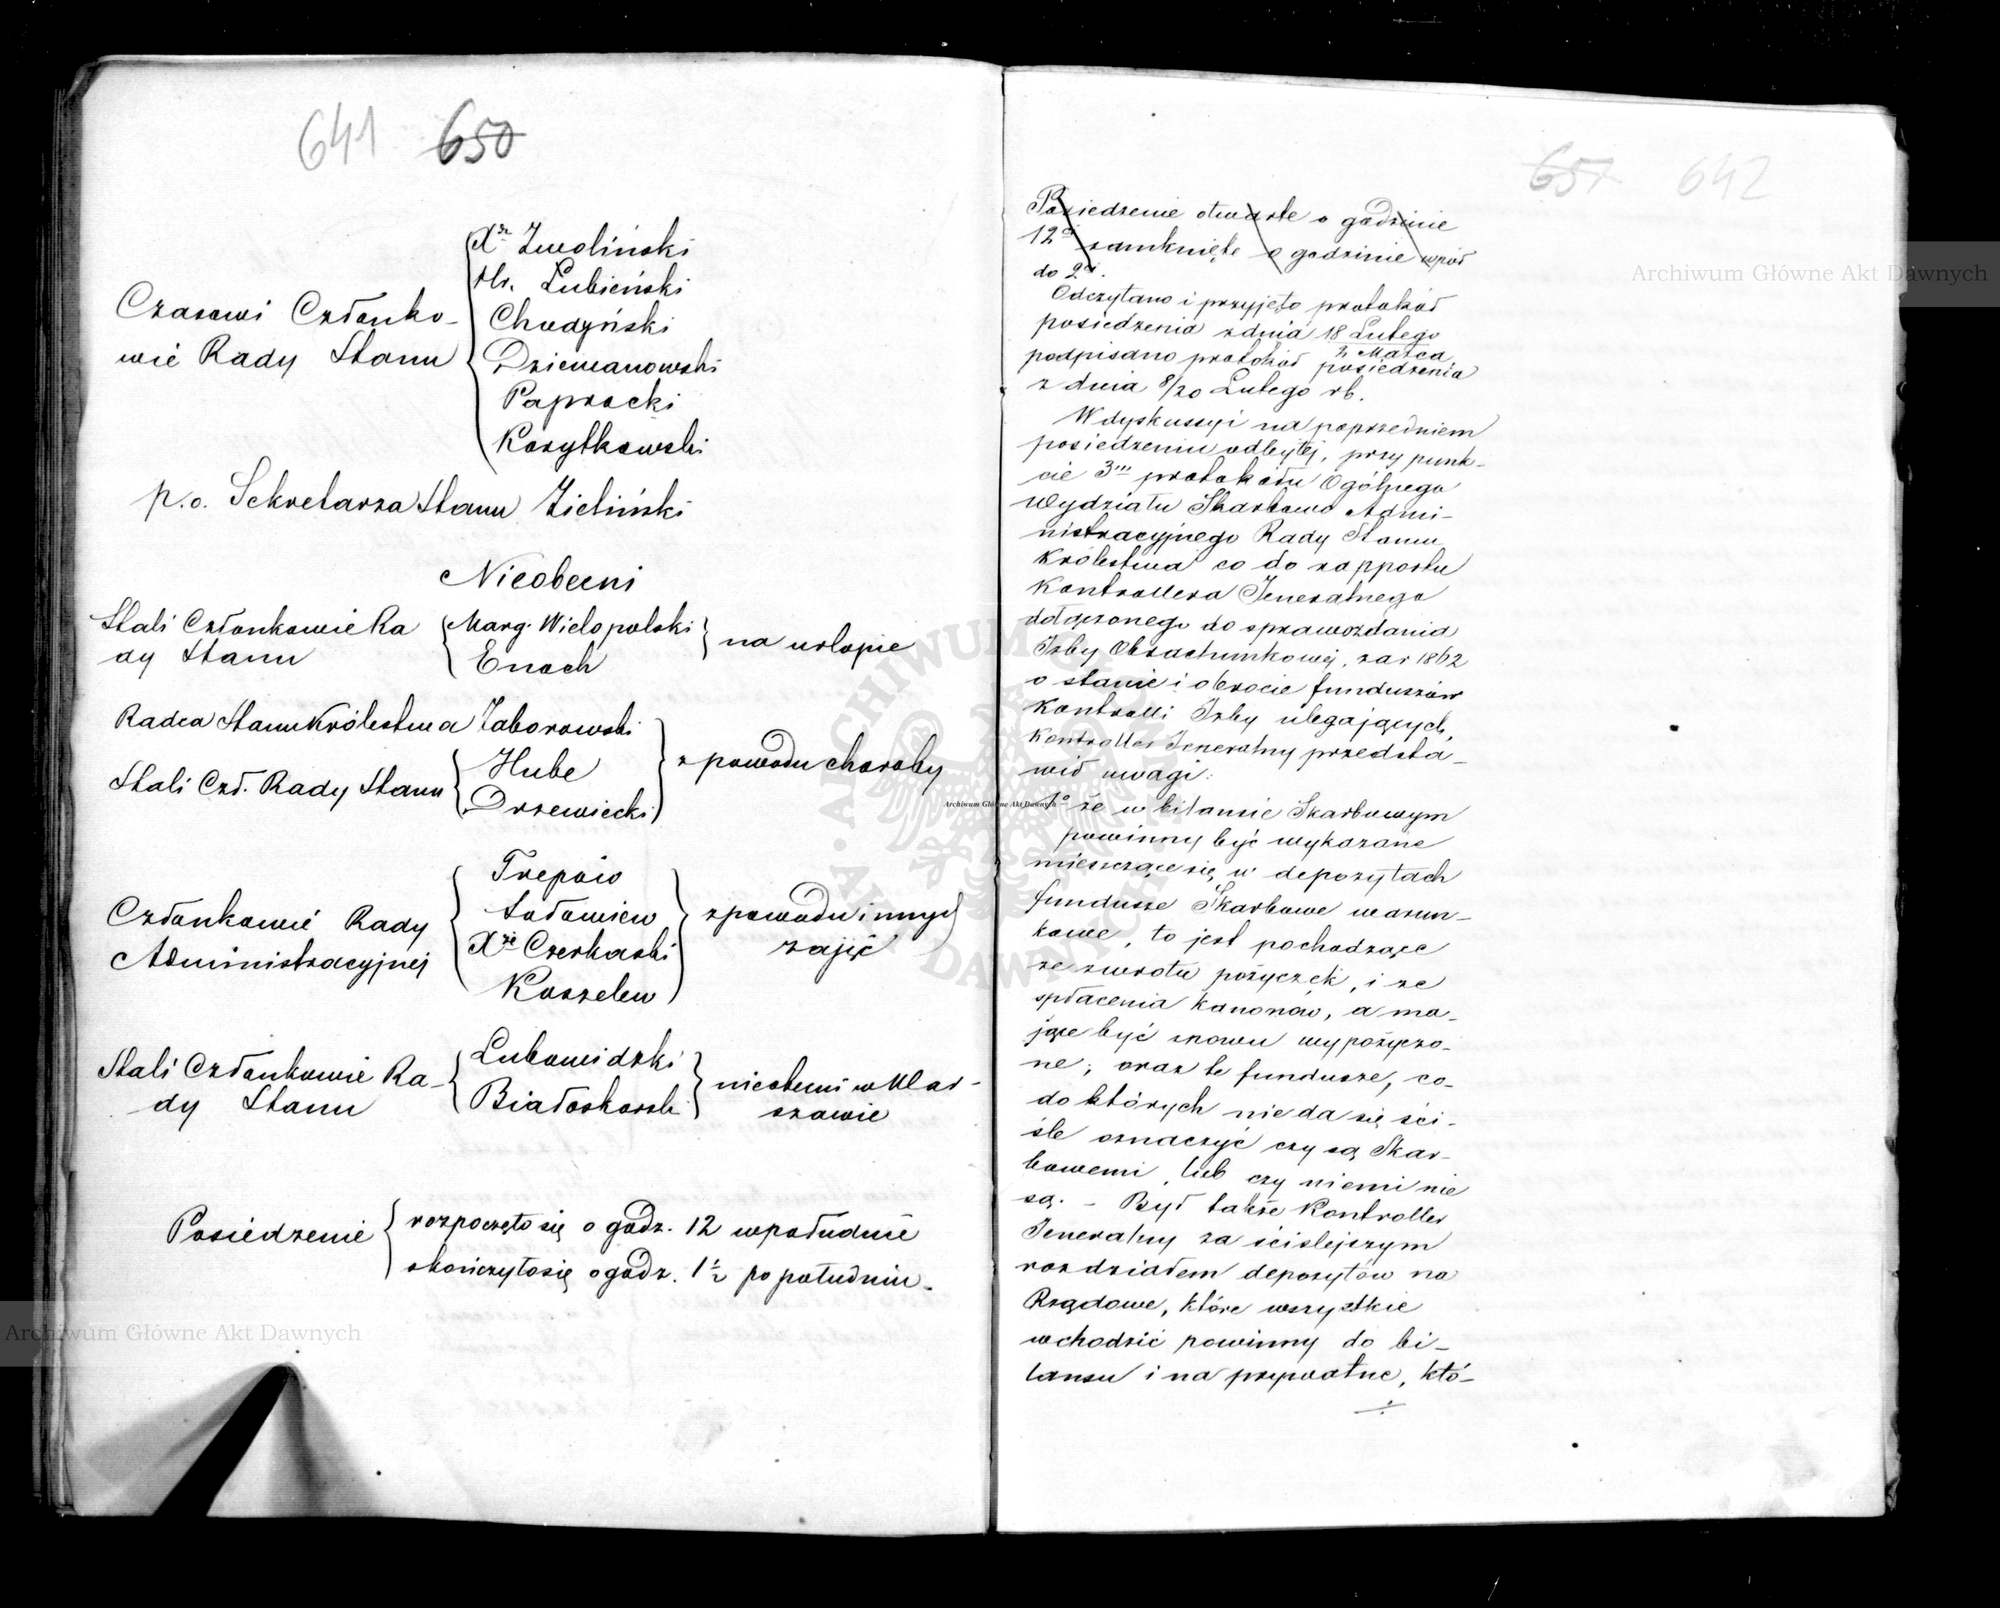 641 650
Czasowi Członko-
wie Rady Stanu
Xdz Zwoliński
Hr. Łubieński
Chudzyński
Dziewanowski
Paprocki
Kożytkowski
p.o. Sekretarza Stanu Zieliński
Nieobecni
Stali Członkowie Ra
dy Stanu
Marg. Wielopolski
Enoch
na urlopie
Radca Stanu Królestwa Zaborowski
Stali Czł. Rady Stanu
Hube
Drzewiecki
z powodu choroby
Członkowie Rady
Administracyjnej
Trepow
Sołowiew
Xże Czerkaski
Koszelew
z powodu innych
zajęć
Stali Członkowie Ra-
dy Stanu
Lubowidzki
Białoskórski
nieobecni w War-
szawie
Posiedzenie
rozpoczęło się o godz. 12 w południe
skończyło się o godz. 1½ po południu.
657 642
Posiedzenie otwarte o godzinie
12éj zamknięte o godzinie wpół
do 2éj.
Odczytano i przyjęto protokół
posiedzenia z dnia 18 Lutego
2 Marca
podpisano protokół posiedzenia
z dnia 8/20 Lutego rb.
W dyskussyi na poprzedniem
posiedzeniu odbytej, przy punk-
cie 3m protokółu Ogólnego
Wydziału Skarbowo Admi-
nistracyjnego Rady Stanu
Królestwa co do rapportu
Kontrollera Jeneralnego
dołączonego do sprawozdania
Izby Obrachunkowéj, za r 1862
o stanie i obrocie funduszów
Kontrolli Izby ulegających,
Kontroller Jeneralny przedsta-
wił uwagi:
1o że w bilansie Skarbowym
powinny być wykazane
mieszczące się w depozytach
fundusze Skarbowe warun-
kowe, to jest pochodzące
ze zwrotu pożyczek, i ze
spłacenia kanonów, a ma-
jące być znowu wypożyczo-
ne; oraz te fundusze, co-
do których nie da się ści-
śle oznaczyć czy są Skar-
bowemi, lub czy niemi nie
są. - Był także Kontroller
Jeneralny za ściślejszym
rozdziałem depozytów na
Rządowe, które wszystkie
wchodzić powinny do bi-
lansu i na prywatne, któ-
Archiwum Główne Akt Dawnych
Archiwum Główne Akt Dawnych
Archiwum Główne Akt Dawnych